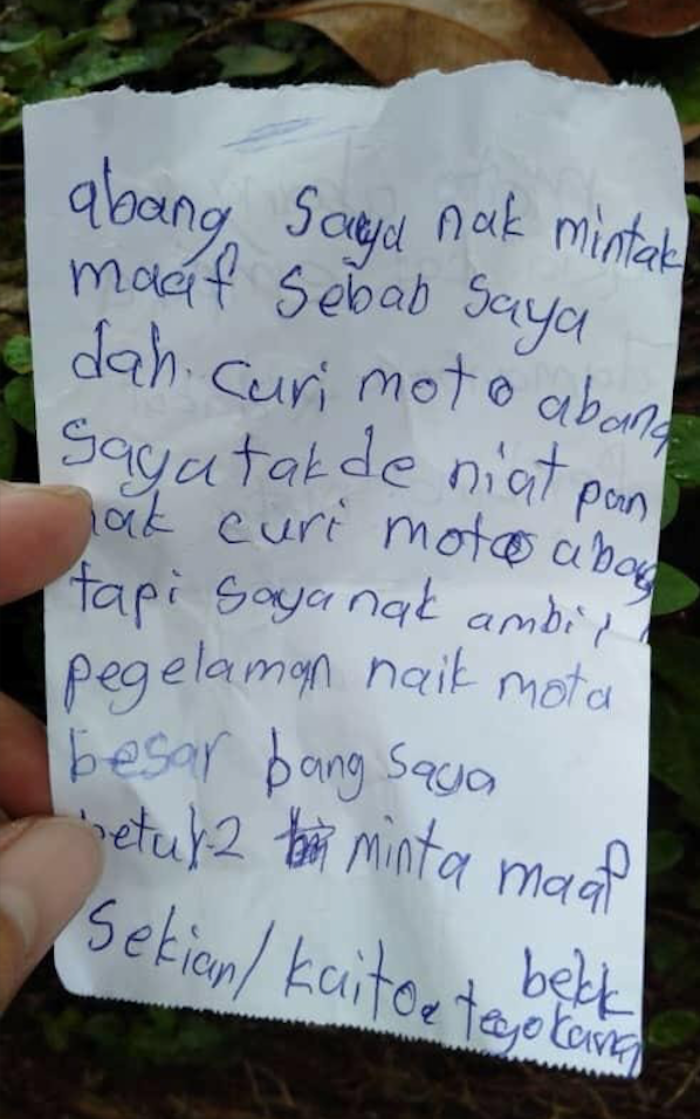 abang saya nak mintak
maaf sebab saya
dah. curi moto abang
saya takde niat pan
nak curi moto abang
tapi saya nak ambil
pegelaman naik mota
besar bang saya
betul-2 minta maaf
sekian/kaitoe
bekk